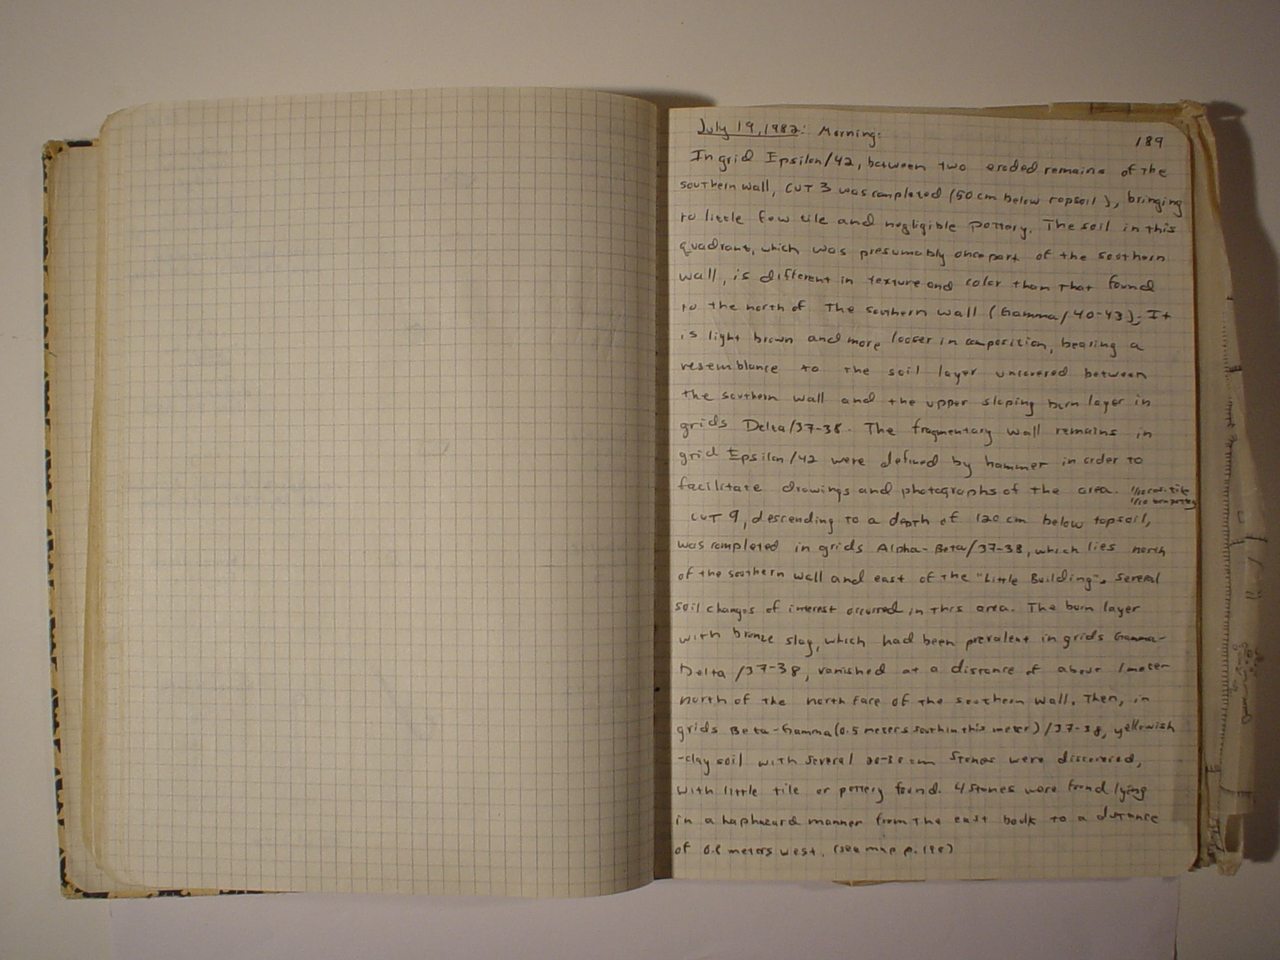 July 19, 1982: Morning:
189
In grid Epsilon/42, between two eroded remains of the
southern wall, CUT 3 was completed (50 cm below topsoil), bringing
to little few tile and negligible pottery. The soil in this
quadrant, which was presumably once part of the southern
wall, is different in texture and color than that found
to the north of the southern wall (Gamma/40-43); It
is light brown and more looser in composition, bearing a
resemblance to the soil layer uncovered between
the southern wall and the upper sloping burn layer in
grids Delta/37-38. The fragmentary wall remains in
grid Epsilon/42 were defined by hammer in order to
facilitate drawings and photographs of the area.
CUT 9, descending to a depth of 120 cm below topsoil,
was completed in grids Alpha-Beta/37-38, which lies north
of the southern wall and east of the "Little Building". Several
soil changes of interest occurred in this area. The burn layer
with bronze slag, which had been prevalent in grids Gamma-
Delta/37-38, vanished at a distance of about 1 meter
north of the north face of the southern wall. Then, in
grids Beta-Gamma (0.5 meters south in this meter)/37-38, yellowish
-clay soil with several cm stones were discovered,
with little tile or pottery found. 4 stones were found lying
in a haphazard manner from the east baulk to a distance
of meters west. (see map p.